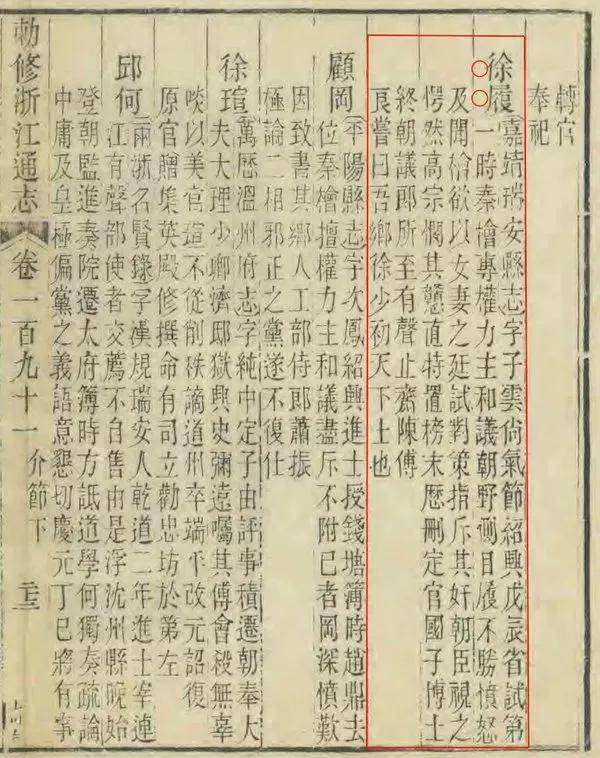 轉官
奉祀
徐履嘉靖瑞安縣志字子雲尚氣節紹興戊辰省試第
一時秦檜專權力主和議朝野側目履不勝憤怒
及聞檜欲以女妻之廷試對策指斥其奸朝臣視之
愕然高宗憫其戇直特置榜末歷刪定官國子博士
終朝議郎所至有聲止齋陳傅
良嘗曰吾鄉徐少初天下士也
顧岡平陽縣志字次鳳紹興進士授錢塘簿時趙鼎去
位秦檜擅權力主和議盡斥不附已者岡深憤歎
因致書其鄉人工部侍郎蕭振
極論二相邪正之黨遂不復仕
徐瑄萬歷溫州府志字純中定子由評事積遷朝奉大
夫大理少卿濟邸獄興史彌遠囑其傅會殺無辜
啖以美官瑄不從削秩謫道州卒端平改元詔復
原官贈集英殿修撰命有司立勸忠坊於第左
邱何兩浙名賢錄字漢規瑞安人乾道二年進士宰連
江有聲部使者交薦不自售由是浮沈州縣晚始
登朝監進奏院遷太府簿時方詆道學何獨奏疏論
中庸及皇極偏黨之義語意懇切慶元丁巳將有事
勅修浙江通志 卷一百九十一 介節下